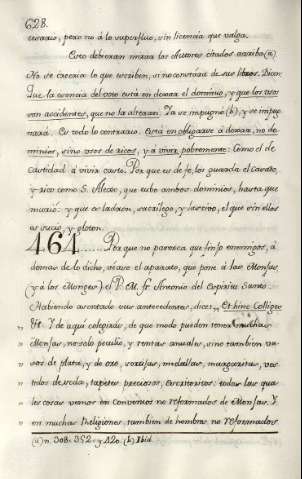 628.
cesario, pero no á lo superfluo, sin licencia que valga.
Esto debieran mirar los Autores citados arriba (a)
No se creeria lo que escriben, si no constára de sus libros. Dicen
Que la esencia del voto está en dexar el dominio, y que los usos
son accidentes, que no la alteran. Ya se impugnó (b), y se impug
nará. Es todo lo contrario. Está en obligarse á dexar, no do
minios, sino usos de ricos, y á vivir pobremente: Como el de
Castidad á vivir casto. Por que es de fe, los guarda el Casado,
y rico como S. que tubo ambos dominios, hasta que
murió: y que es ladron, sacrilego, y lascivo, el que sin ellos
es sucio, y gloton.
464 Por que no paresca que finjo enemigos, á
demas de lo dicho, véase el aparato, que pone á los Monjas,
(y á los Monges) el P. M. fr. Antonio del Espiritu Santo.
Habiendo asentado sus antecedentes, dice: „ Et hinc Colliges
„ &c. Y de aquí colegirás, de que modo pueden tener muchas
„ Monjas, no solo peculio, y rentas anuales, sino tambien va
„ sos de plata, y de oro, sortijas, medallas, margaritas, ves
„ tidos de seda, tapetes preciosos, escritorios: todas las qua
„ les cosas vemos en Conventos no reformados de Monjas. Y
„ en muchas Religiones, tambien de hombres, no reformados
(a) n. 308. 352. y 420. (b) Ibid.